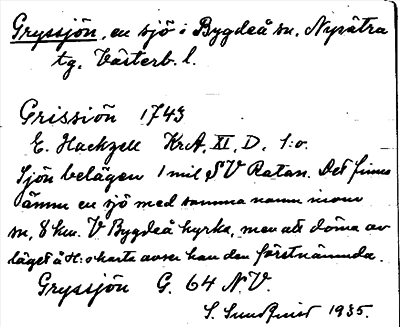 Gryssjön, en sjö i Bygdeå sn. Nysätra
tg. Västerb. l.
Grissiön 1743
E. Hackzell KrA, XI, D, 1:o.
Sjön belägen 1 mil SV Ratan. Det finnes
ännu en sjö med samma namn inom
sn, 8 km. V Bygdeå kyrka, men att döma av
läget å H:s karta avser han den förstnämnda.
Gryssjön G. 64 N.V.
S. Sundqvist 1935.